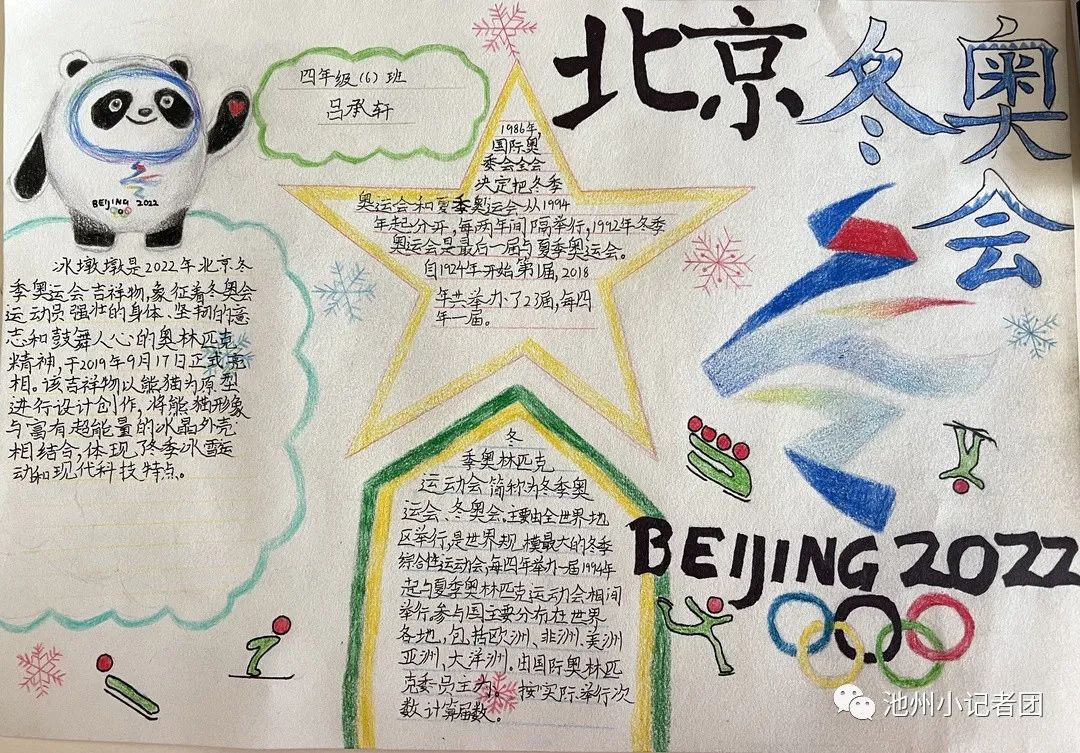 北京冬奥会
四年级(6)班
吕承轩
BEIJING 2022
1986年,
国际奥
委会全会
决定把冬季
奥运会和夏季奥运会从1994
年起分开,每两年间隔举行,1992年冬季
奥运会是最后一届与夏季奥运会。
自1924年开始第1届,2018
年共举办了23届,每四
年一届。
冰墩墩是2022年北京冬
季奥运会吉祥物,象征着冬奥会
运动员强壮的身体、坚韧的意
志和鼓舞人心的奥林匹克
精神,于2019年9月17日正式亮
相。该吉祥物以熊猫为原型
进行设计创作,将熊猫形象
与富有超能量的冰晶外壳
相结合,体现了冬季冰雪运
动和现代科技特点。
冬
季奥林匹克
运动会简称为冬季奥
运会、冬奥会,主要由全世界地
区举行,是世界规模最大的冬季
综合性运动会,每四年举办一届1994年
起与夏季奥林匹克运动会相间
举行。参与国主要分布在世界
各地,包括欧洲、非洲、美洲
亚洲,大洋洲。由国际奥林匹
克委员主为,按实际举行次
数计算届数。
BEIJING 2022
池州小记者团